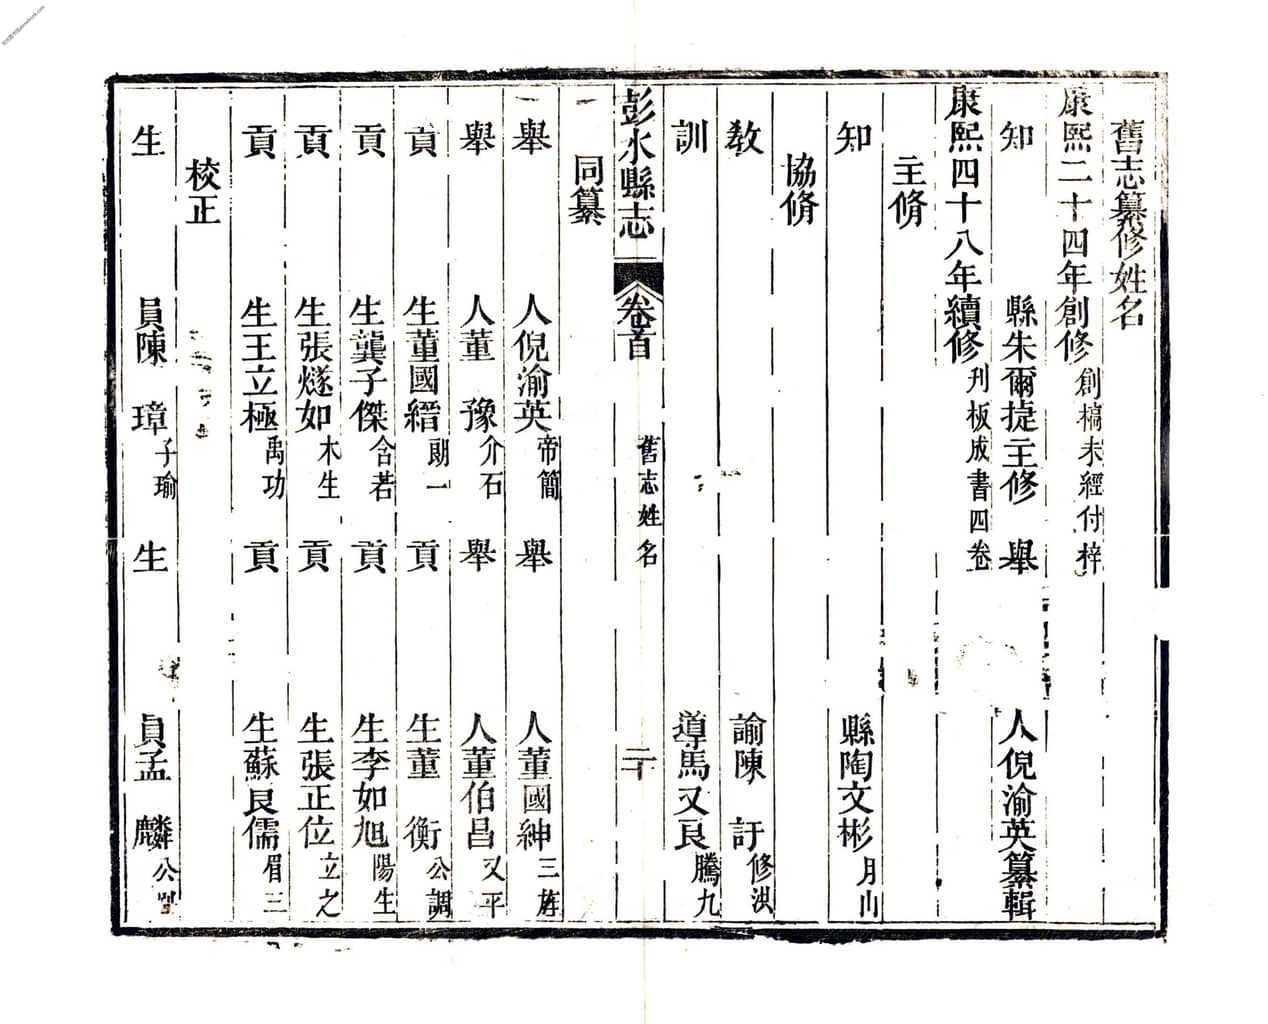 舊志纂修姓名
康熙二十四年創修創稿未經付梓
知縣朱爾捷主修 舉人倪渝英纂輯
康熙四十八年續修刋板成書四卷
主脩
知縣陶文彬月山
協脩
教諭陳訏修洪
訓導馬又良騰九
彭水縣志 卷首 舊志姓名 二十
同纂
舉人倪渝英帝簡 舉人董國紳三旌
舉人董豫介石 舉人董伯昌又平
貢生董國縉朗一 貢生董衡公調
貢生龔子傑含若 貢生李如旭陽生
貢生張燧如木生 貢生張正位立之
貢生王立極禹功 貢生蘇良儒眉三
校正
生員陳璋子瑜 生員孟麟公